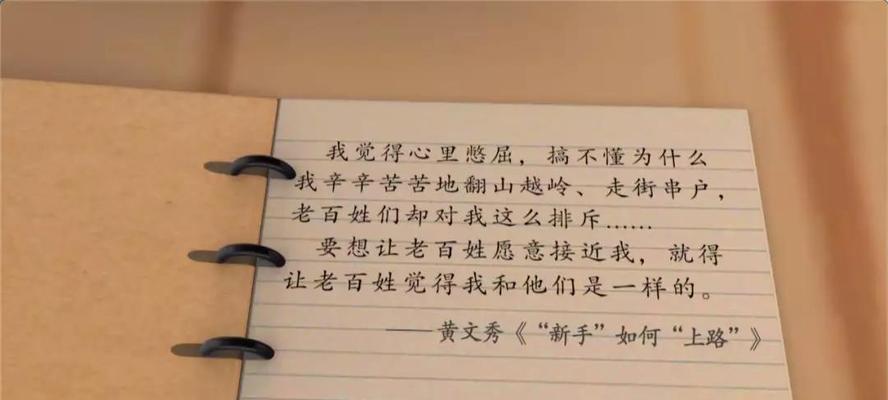 我觉得心里憋屈，搞不懂为什么
我辛辛苦苦地翻山越岭、走街串户，
老百姓们却对我这么排斥……
要想让老百姓愿意接近我，就得
让老百姓觉得我和他们是一样的。
——黄文秀《“新手”如何“上路”》